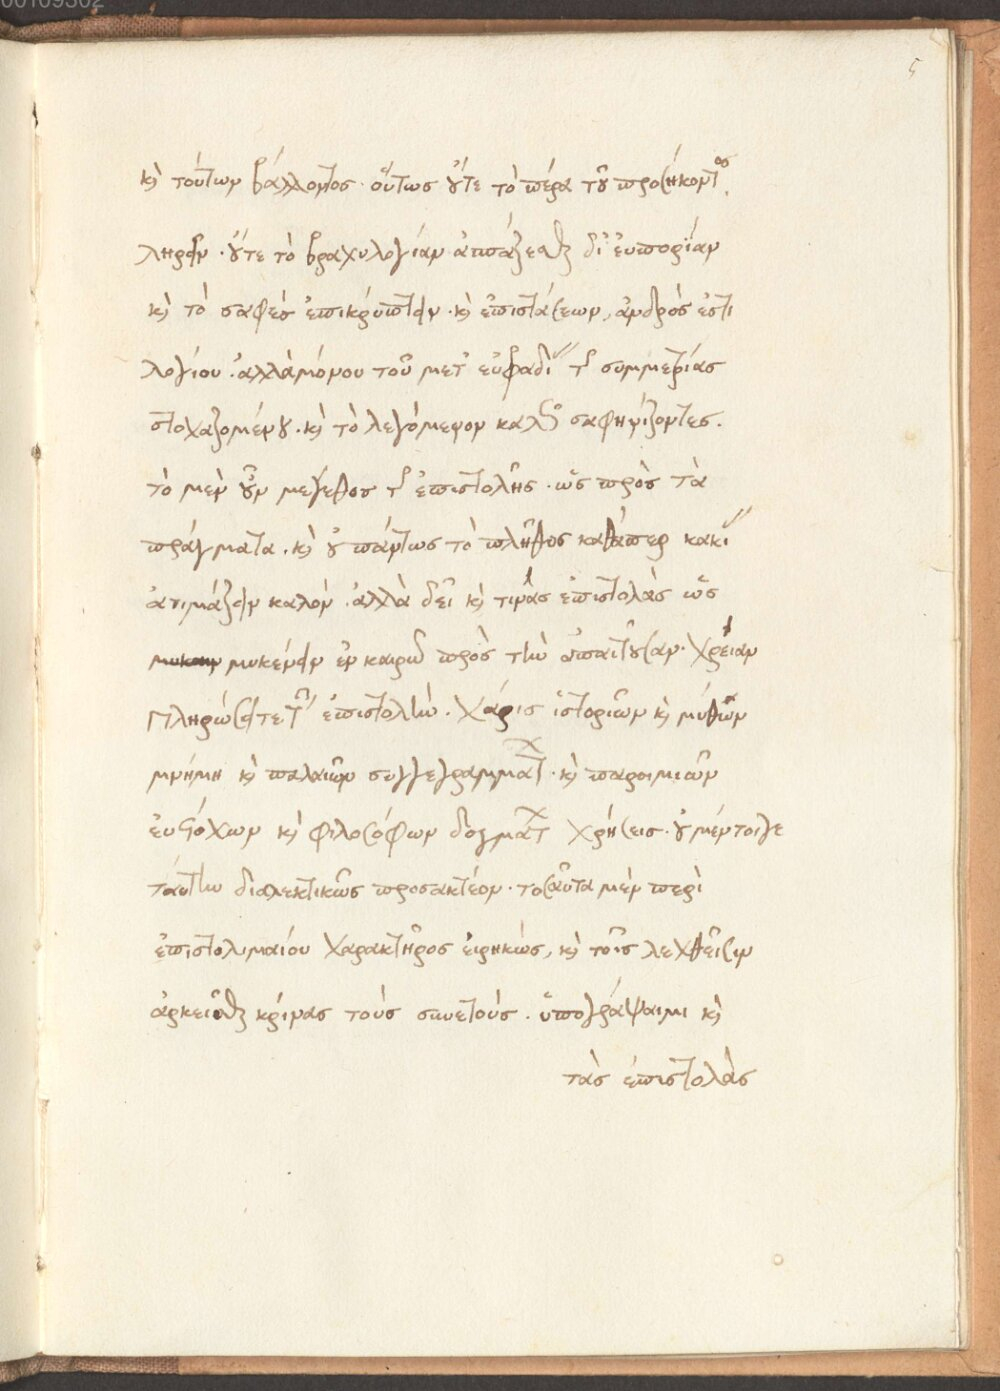 5
κ̀ τούτων βάλλοντος· οὕτως οὔτε τὸ πέρα τοῦ προσήκοντος
ληρεῖν· οὔτε τὸ βραχυλογίαν ἀσπάζεσθαι δι' εὐπορίαν
κ̀ τὸ σαφὲς ἐπικρύπτειν· κ̀ ἐπιστάσεων, ἀνδρός ἐστι
λογίου· ἀλλὰ μόνου τοῦ μετ' τῆς συμμετρίας
στοχαζομένου· κ̀ τὸ λεγόμενον καλῶς σαφηνίζοντες.
τὸ μὲν οὖν μέγεθος τῆς ἐπιστολῆς· ὡς πρὸς τὰ
πράγματα· κ̀ οὐ πάντως τὸ πλῆθος καθάπερ
ἀτιμάζειν καλόν· ἀλλὰ δεῖ κ̀ τινὰς ἐπιστολὰς ὡς
μυκένειν ἐν καιρῶ πρὸς τὴν ἀπαιτοῦσαν· χρείαν
πληρώσει τε τὴν ἐπιστολὴν· χάρις ἱστοριῶν κ̀ μύθων
μνήμη κ̀ παλαιῶν συγγεγραμμάτων· κ̀ παροιμιῶν
εὐστόχων κ̀ φιλοσόφων δογμάτων χρήσεις· οὐ μέντοιγε
ταύτην διαλεκτικῶς προσακτέον· τοσαῦτα μὲν περὶ
ἐπιστολιμαίου χαρακτῆρος εἰρηκώς, κ̀ τοῖς λεχθεῖσιν
ἀρκεῖσθαι κρίνας τοὺς συνετούς· ὑπογράψαιμι κ̀
τὰς ἐπιστολὰς